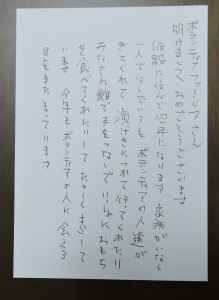 ボランティアファミリアさん
明けまして、おめでとうございます
仮設に住んで四年になります 家族がいなく
一人でくらしていても ボランティアの人達が
きてくれて 演げきにつれて行ってくれたり
みなとの館で手をつないでいっしょにおもち
を食べてくれたりして たのしくすごして
います 今年もボランティアの人に会える
日をまた まっています